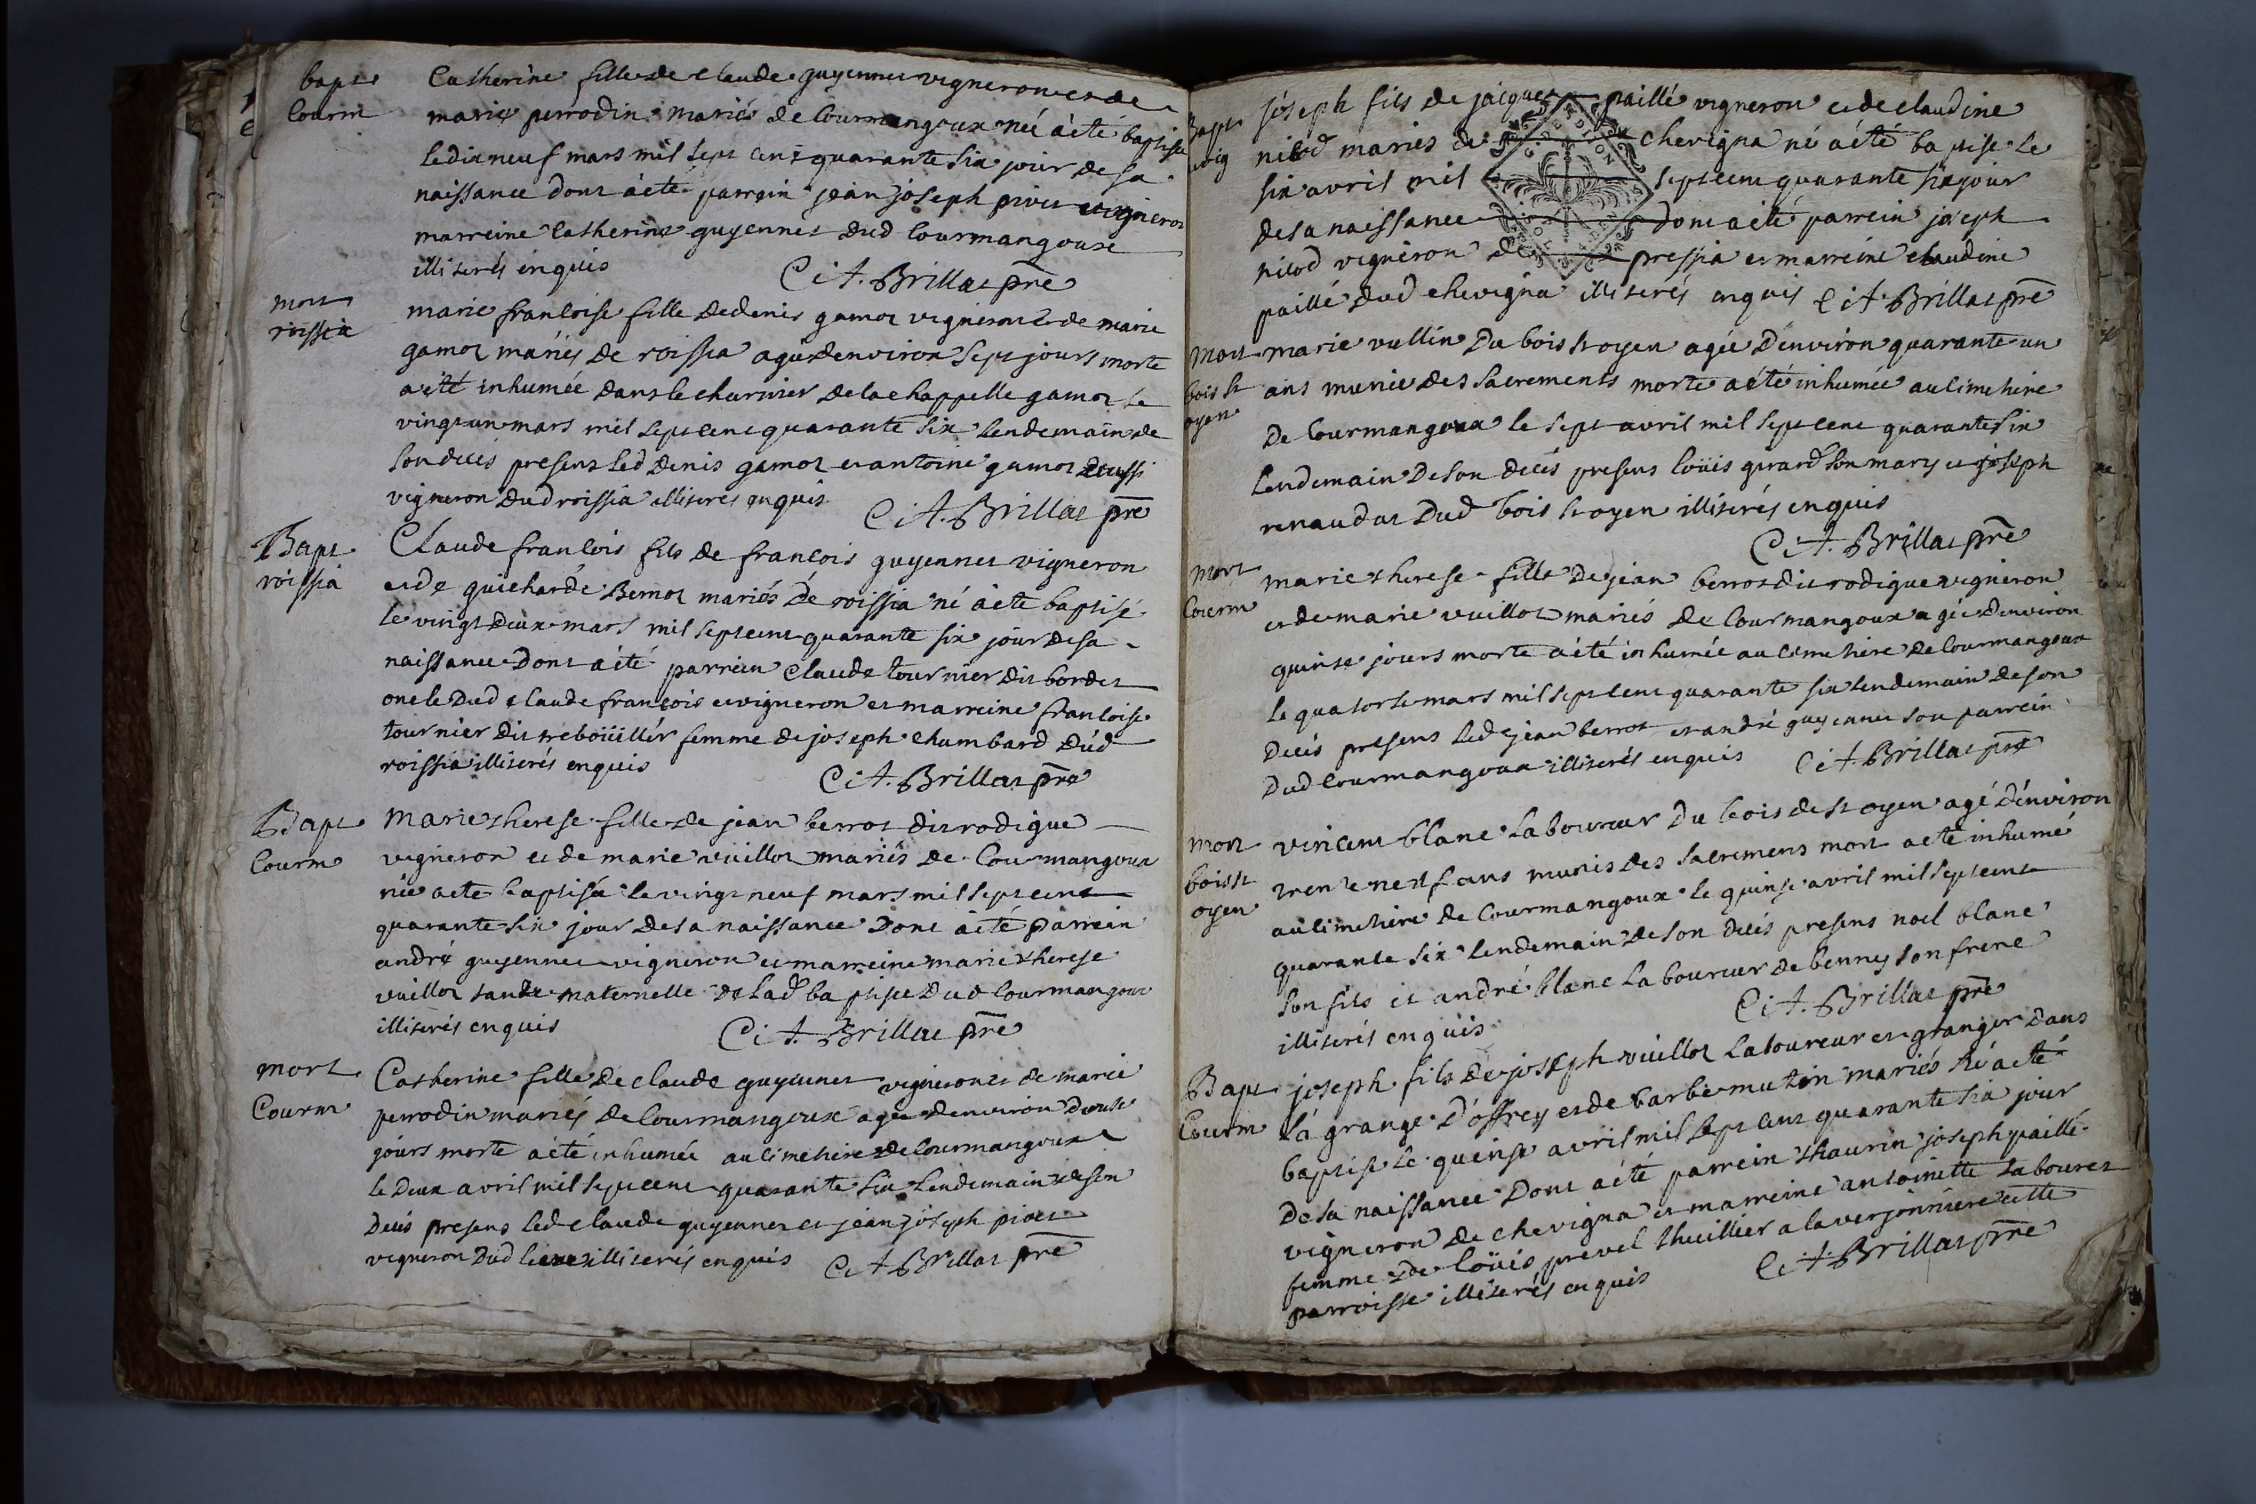 bapt
Courm
Catherine fille de claude guyennet vigneron et de
marie perrodin mariés de Courmangoux née a été baptisée
le dix neuf mars mil sept cent quarante six jour de sa
naissance dont a été parrein jean joseph pivet vigneron
marreine Catherine guyennet dud Courmangoux
illiterés enquis C: A. Brillat pre
mort
roissia
marie francoise fille de denis gamot vigneron et de marie
gamot mariés de roissia agée denviron sept jours morte
a été inhumée dans le charnier de la chappelle gamot le
vingt un mars mil sept cent quarante six lendemain de
son décés presens led denis gamot et antoine gamot aussi
vigneron dud roissia illiterés enquis C: A. Brillat pre
Bapt
roissia
Claude francois fils de francois guyennet vigneron
et de guicharde Bernot mariés de roissia né a été baptisé
le vingt deux mars mil sept cent quarante six jour de sa
naissance dont a été parrein claude tournier dit bordet
oncle dud claude francois et vigneron et marreine francoise
tournier dit treboüillér femme de joseph chambard dud
roissia illiterés enquis C: A. Brillat pre
Bapt
Courm
Marie therese fille de jean berrot dit rodigue
vigneron et de marie vuillot mariés de Courmangoux
née a été baptisée le vingt neuf mars mil sept cent
quarante six jour de sa naissance dont a été parrein
andré guyennet vigneron et marreine marie therese
vuillot tante maternelle de lad baptisée dud Courmangoux
illiterés enquis C: A. Brillat pre
mort
Courm
Catherine fille de claude guyennet vigneron et de marie
perrodin mariés de Courmangoux agée denviron douze
jours morte a été inhumée au cimetiere de Courmangoux
le deux avril mil sept cent quarante six lendemain de son
décés presens led claude guyennet et jean joseph pivet
vigneron dud lieu illiterés enquis C: A. Brillat pre
Bapt
joseph fils de jacques paillé vigneron et de claudine
nicod mariés de chevigna né a été baptisé le
six avril mil sept cent quarante six jour
de sa naissance dont a été parrein joseph
nicod vigneron de pressia et marreine claudine
paillé dud chevigna illiterés enquis C: A. Brillat pre
Mort
bois st
oyen
marie vullin du bois st oyen agée d'environ quarante un
ans munie des sacrements morte a été inhumée au cimetiere
de Courmangoux le sept avril mil sept cent quarante six
lendemain de son décés presens loüis girard son mary et joseph
renaudat dud bois st oyen illiterés enquis
C: A. Brillat pre
mort
Courm
marie therese fille de jean berrot dit rodigue vigneron
et de marie vuillot mariés de Courmangoux agée denviron
quinse jours morte a été inhumée au cimetiere de Courmangoux
le quatorse mars mil sept cent quarante six lendemain de son
décés presens led jean berrot et andré guyennet son parrein
dud Courmangoux illiterés enquis C: A. Brillat pre
mort
bois st
oyen
vincent blanc laboureur du bois de st oyen agé d'environ
trente neuf ans munis des sacremens mort a été inhumé
au cimetiere de Courmangoux le quinse avril mil sept cent
quarante six lendemain de son décés presens noel blanc
son fils et andré blanc laboureur de benny son frere
illiterés enquis C: A. Brillat pre
Bapt
Courm
joseph fils de joseph vuillot laboureur et granger dans
la grange d'offrey et de barbe mutin mariés né a été
baptisé le quinse avril mil sept cent quarante six jour
de sa naissance dont a été parrein thaurin joseph paillé
vigneron de chevigna et marreine antoinette labouret
femme de loüis prevel thuillier a la verjonniere cette
parroisse illiterés enquis C: A. Brillat pre